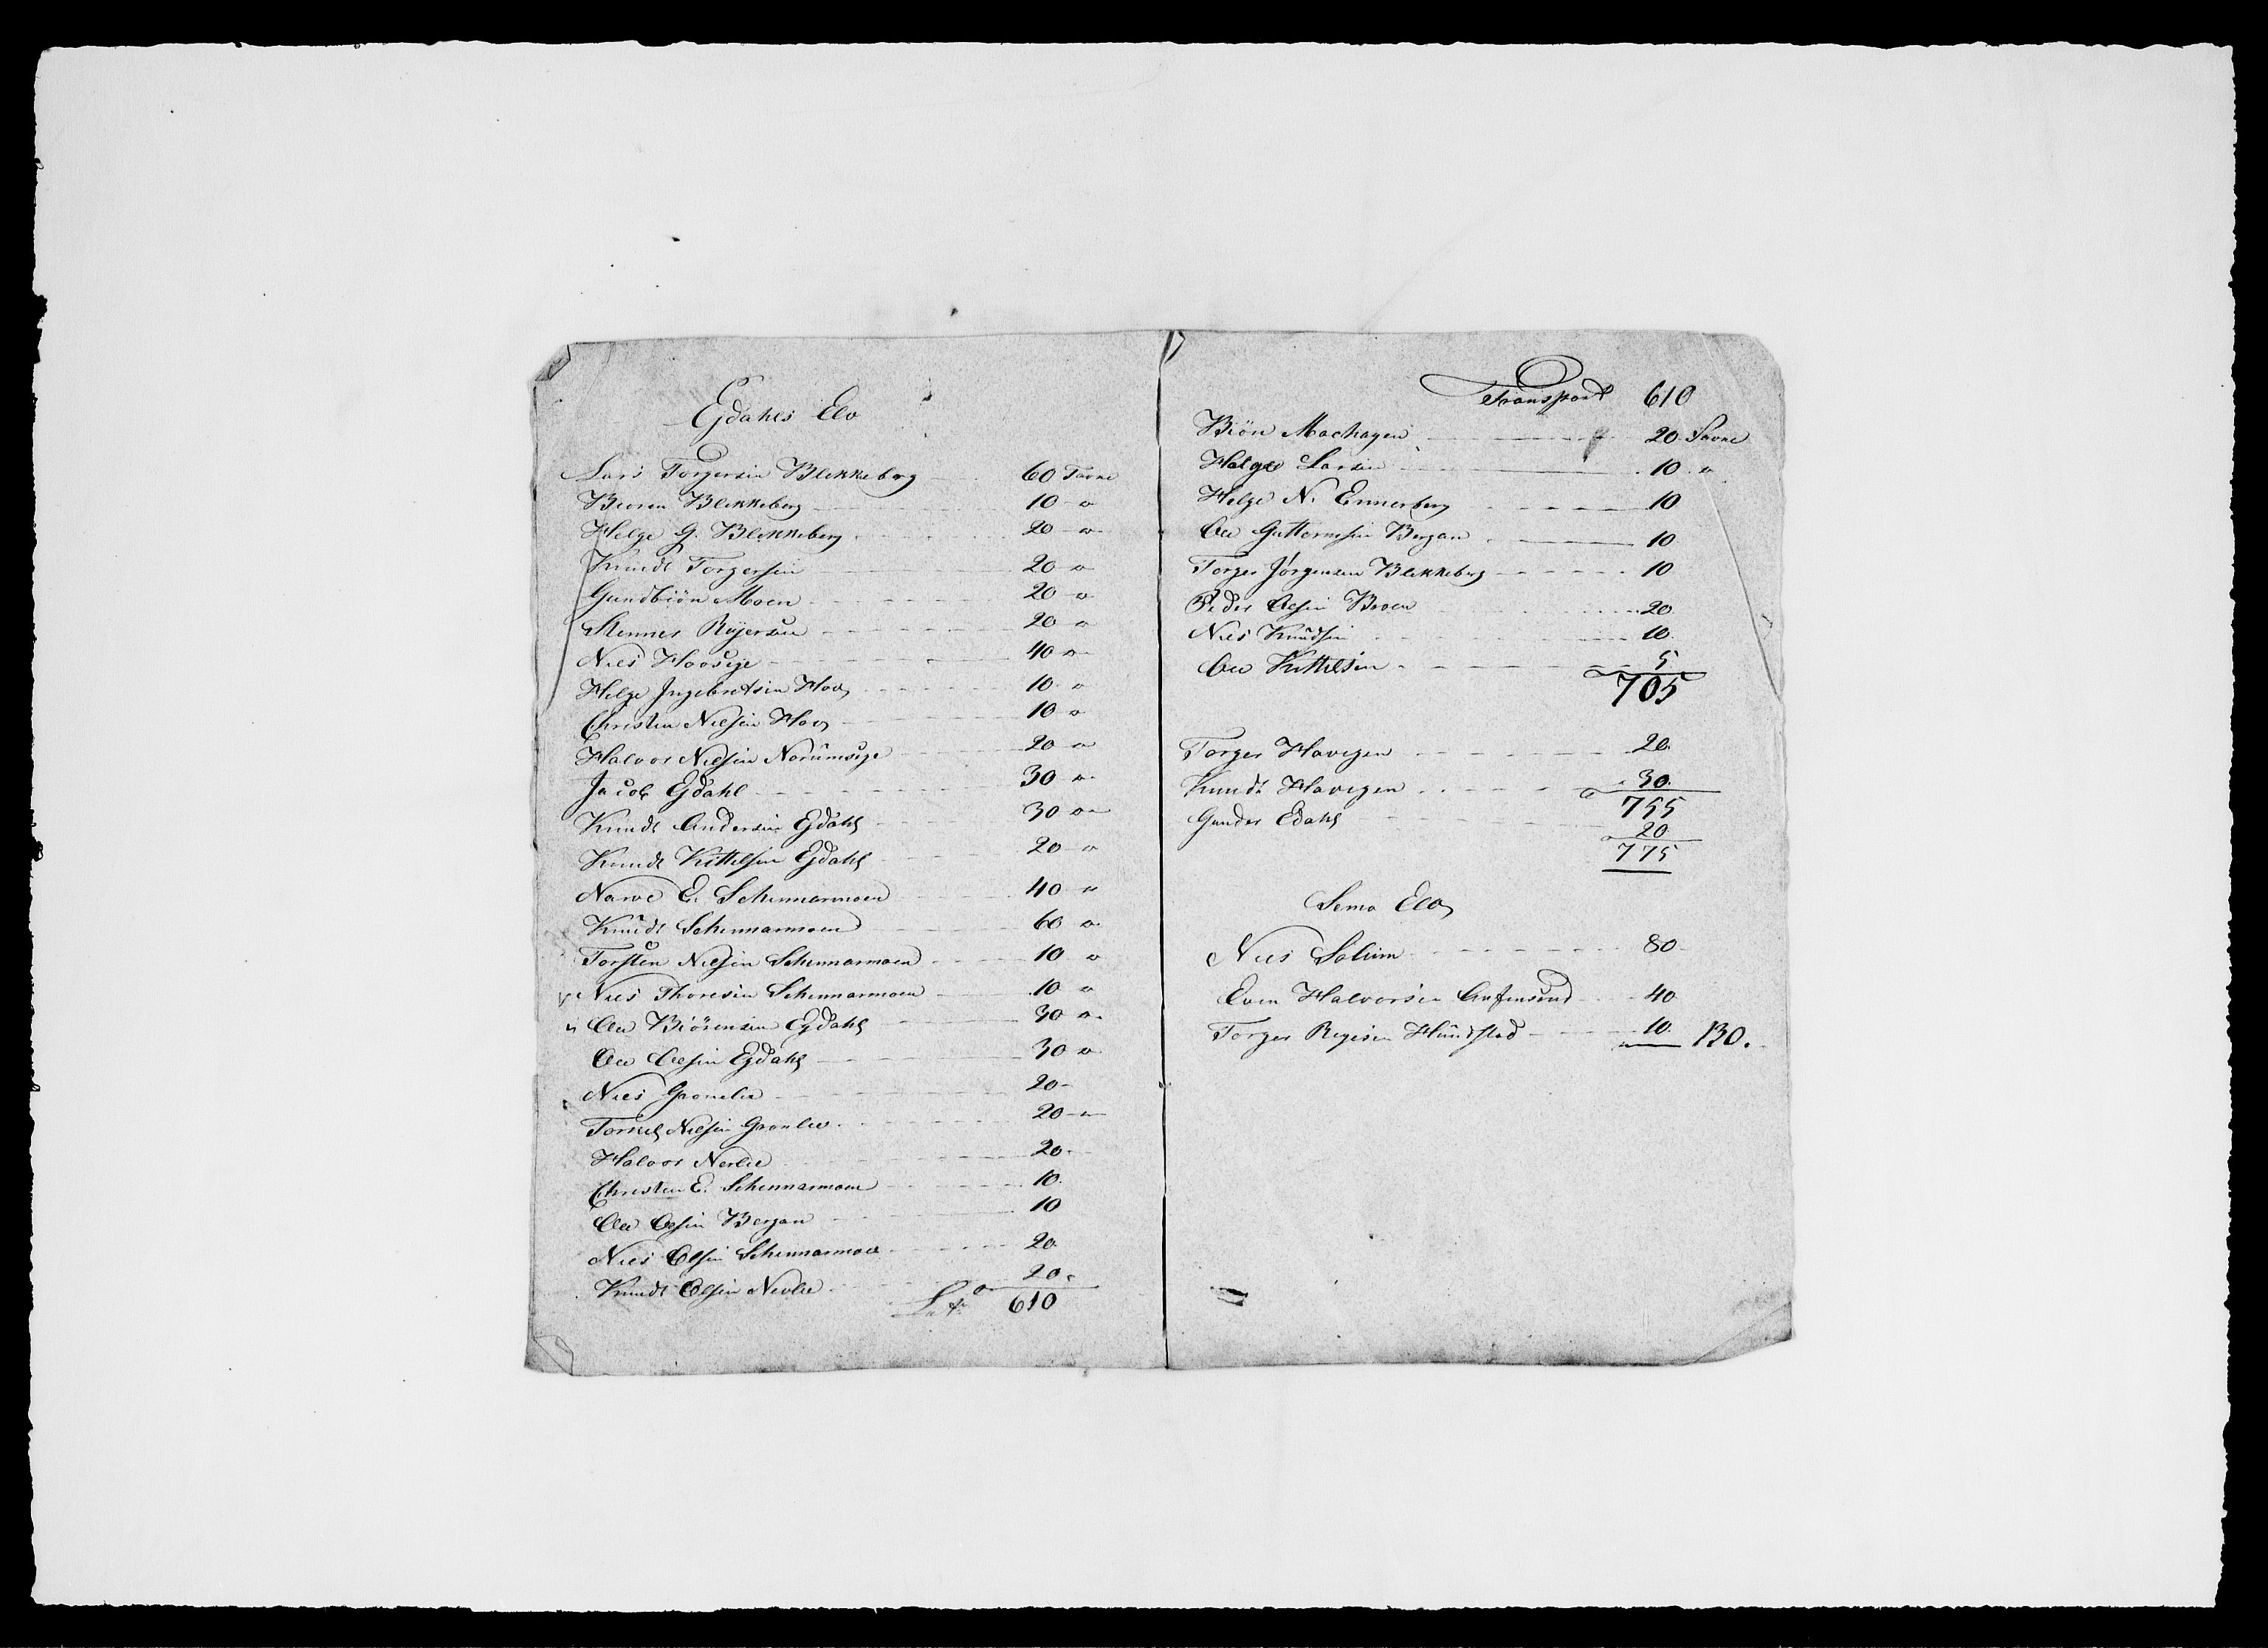 Egdahls Elv
Lars Torgersen Blekkeberg 60 Tavne
Biören Blekkeberg 10 "
Helge G. Blekkeberg 20 "
Knudt Torgersen 20 "
Gundbiön Moen 20 "
Stenner Reyersen 20 "
Niels Hooseje 40 "
Helge Ingebretsen Hov 10 "
Christen Nielsen Hov 10 "
Halvor Nielsen Norumseje 20 "
Jacob Egdahl 30 "
Knudt Andersen Egdahl 30 "
Knudt Kittelsen Egdahl 20 "
Narve E. Schinnarmoen 40 "
Knudt Schinnarmoen 60 "
Torsten Nielsen Schinnarmoen 10 "
Niels Thoresen Schinnarmoen 10 "
Ole Biörensen Egdahl 30 "
Ole Olsen Egdahl 30 "
Niels Gronlie 20
Torkel Nielsen Gronlie 20 "
Halvor Nerlie 20
Christen E. Schinnarmoen 10
Ole Olsen Bergan 10
Niels Olsen Schinnarmoen 20
Knudt Olsen Nerlie 20
Lat. 610
Transport 610
Biön Machagen 20 Tavne
Helge Larsen 10 "
Helge N. Ennerberg 10
Ole Guttormsen Bergan 10
Torger Jörgensen Blekkeberg 10
Peder Olsen Broen 20
Niels Knudsen 10
Ole Kittelsen 5
705
Torger Havegen 20
Knudt Havegen 30
755
Gunder Edahl 20
775
Semo Elv
Niels Solum 80
Even Halvorsen 40
Torger Regesen Hundstad 10 130.